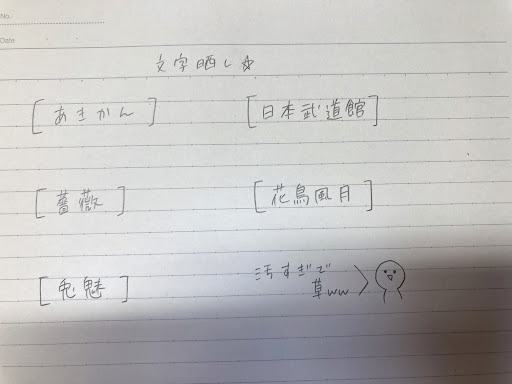 No.
Date
文字晒し☆
[あきかん] [日本武道館]
[薔薇] [花鳥風月]
[兎魅]
汚すぎで
草ww